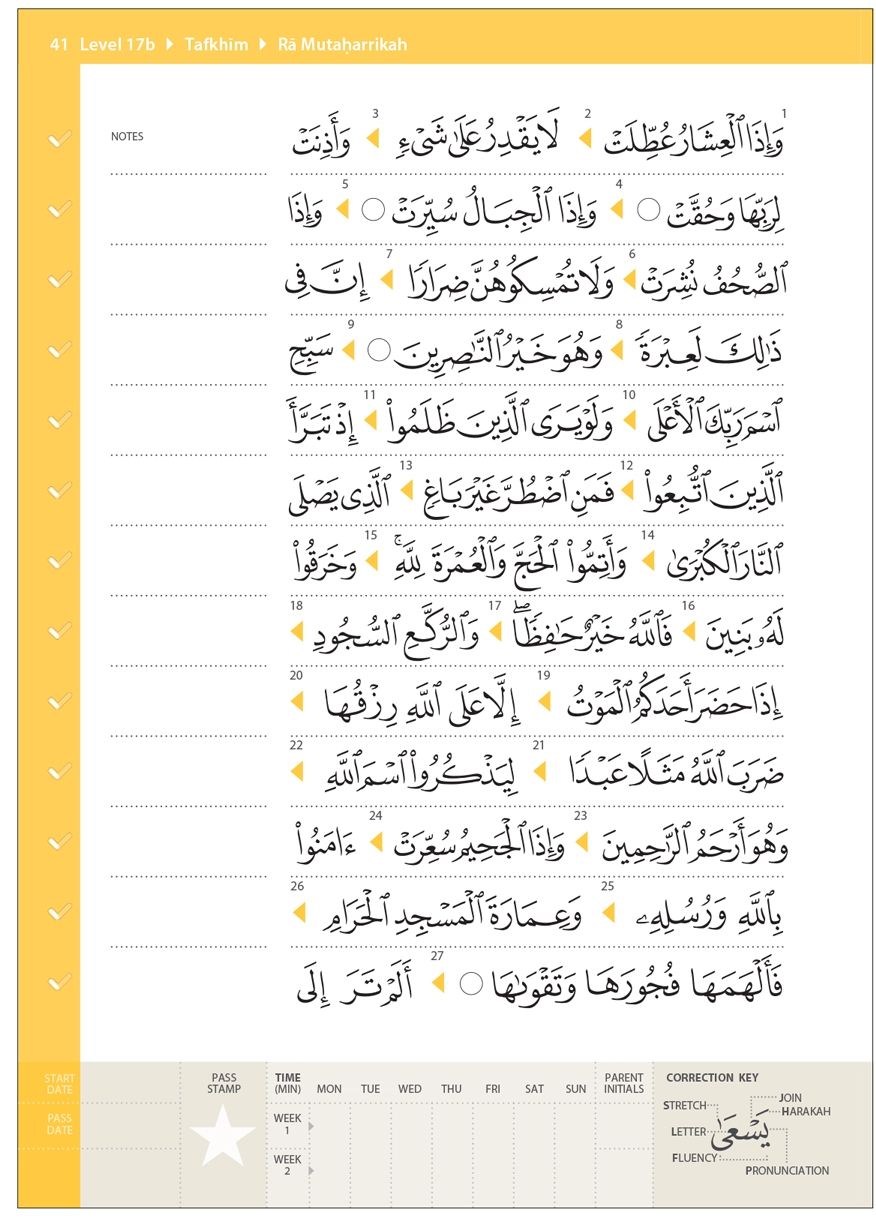 41 Level 17b ▶ Tafkhīm ▶ Rā Mutaḥarrikah
NOTES
1 وَإِذَا ٱلْعِشَارُ عُطِّلَتْ 2 لَا يَقْدِرُ عَلَىٰ شَىْءٍ 3 وَأَذِنَتْ
لِرَبِّهَا وَحُقَّتْ ○ 4 وَإِذَا ٱلْجِبَالُ سُيِّرَتْ ○ 5 وَإِذَا
ٱلصُّحُفُ نُشِرَتْ 6 وَلَا تُمْسِكُوهُنَّ ضِرَارًا 7 إِنَّ فِى
ذَٰلِكَ لَعِبْرَةً 8 وَهُوَ خَيْرُ ٱلنَّٰصِرِينَ ○ 9 سَبِّحِ
ٱسْمَ رَبِّكَ ٱلْأَعْلَى 10 وَلَوْ يَرَى ٱلَّذِينَ ظَلَمُوا۟ 11 إِذْ تَبَرَّأَ
ٱلَّذِينَ ٱتُّبِعُوا۟ 12 فَمَنِ ٱضْطُرَّ غَيْرَ بَاغٍ 13 ٱلَّذِى يَصْلَى
ٱلنَّارَ ٱلْكُبْرَىٰ 14 وَأَتِمُّوا۟ ٱلْحَجَّ وَٱلْعُمْرَةَ لِلَّهِ ۚ 15 وَخَرَقُوا۟
لَهُۥ بَنِينَ 16 فَٱللَّهُ خَيْرٌ حَٰفِظًا ۖ 17 وَٱلرُّكَّعِ ٱلسُّجُودِ 18
إِذَا حَضَرَ أَحَدَكُمُ ٱلْمَوْتُ 19 إِلَّا عَلَى ٱللَّهِ رِزْقُهَا 20
ضَرَبَ ٱللَّهُ مَثَلًا عَبْدًا 21 لِيَذْكُرُوا۟ ٱسْمَ ٱللَّهِ 22
وَهُوَ أَرْحَمُ ٱلرَّٰحِمِينَ 23 وَإِذَا ٱلْجَحِيمُ سُعِّرَتْ 24 ءَامَنُوا۟
بِٱللَّهِ وَرُسُلِهِۦ 25 وَعِمَارَةَ ٱلْمَسْجِدِ ٱلْحَرَامِ 26
فَأَلْهَمَهَا فُجُورَهَا وَتَقْوَىٰهَا ○ 27 أَلَمْ تَرَ إِلَى
START DATE
PASS DATE
PASS STAMP
TIME (MIN) MON TUE WED THU FRI SAT SUN
WEEK 1
WEEK 2
PARENT INITIALS
CORRECTION KEY
STRETCH
JOIN
HARAKAH
LETTER
يَسْعَىٰ
FLUENCY
PRONUNCIATION